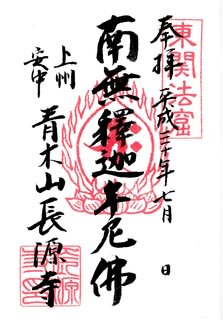 奉拝 平成二十年七月 日
東関法窟
南無釋迦牟尼佛
上州
安中
青木山長源寺